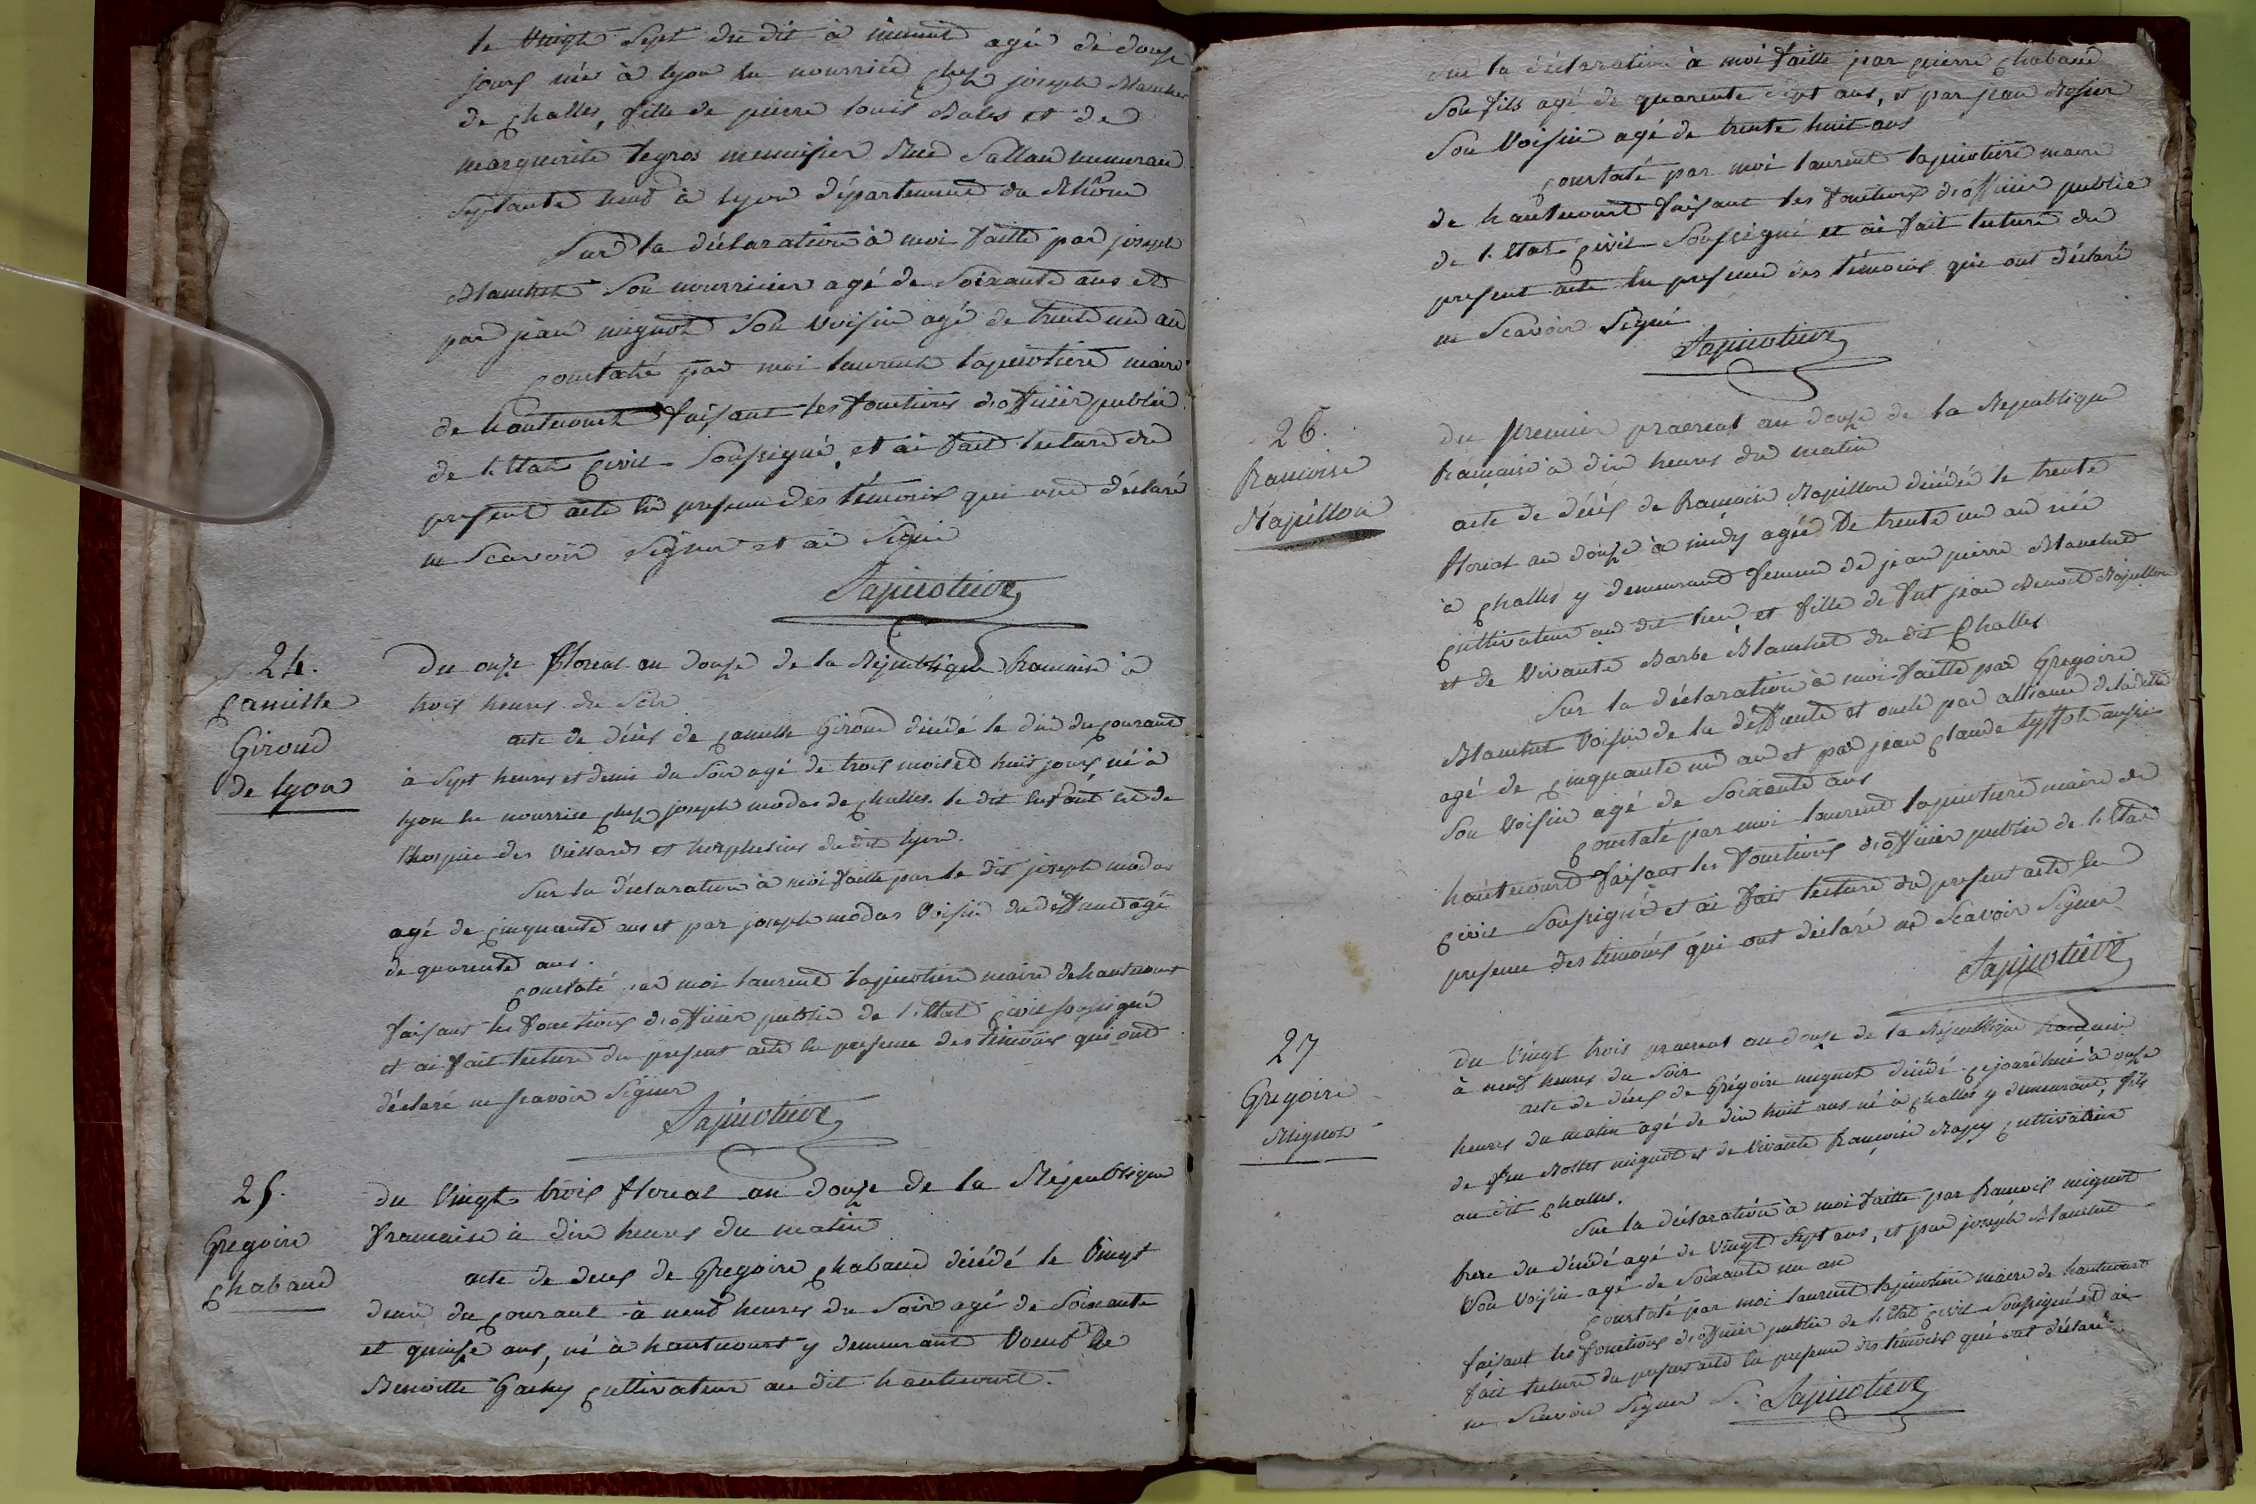 le vingt sept du dit à minuit agée de douze
jours née à lyon en nourrice chez joseph Blanchet
de challes, fille de pierre louis Bales et de
marguerite legros menuisier Rue Sallan numerau
septante neuf à lyon département du Rhône
Sur la déclaration à moi faitte par joseph
Blanchet son nourricier agé de soixante ans et
par jean mignot son voisin agé de trente un an
constaté par moi laurent lapiertiere maire
de hautecourt faisant les fonctions d'officier public
de l'etat civil soussigné, et ai fait lecture du
present acte en presence des témoins qui ont déclaré
ne scavoir signer et ai signé
Lapiertiere
24.
Camille
Giroud
de lyon
Du onze floreal an douze de la République francaise à
trois heures du soir
acte de décès de camille Giroud décédé le dix du courant
à sept heures et demi du soir agé de trois mois et huit jours, né à
lyon en nourrice chez joseph modas de challes. le dit enfant né de
l'hospice des viellards et horphelins du dit lyon.
Sur la déclaration à moi faitte par le dit joseph modas
agé de cinquante ans et par joseph modas voisin du deffunt agé
de quarente ans.
constaté par moi laurent lapiertiere maire de hautecourt
faisant les fonctions d'officier public de l'etat civil soussigné
et ai fait lecture du present acte en presence des témoins qui ont
déclaré ne scavoir signer
Lapiertiere
25.
Gregoire
chabaud
du vingt trois floreal an douze de la République
francaise à dix heures du matin
acte de deces de Gregoire chabaud décédé le vingt
deux du courant à neuf heures du soir agé de soixante
et quinze ans, né à hautecourt y demeurant voeuf de
Benoitte Gachy cultivateur au dit hautecourt.
sur la déclaration à moi faitte par pierre chabaud
son fils agé de quarente sept ans, et par jean Rosier
son voisin agé de trente huit ans
constaté par moi laurent lapiertiere maire
de hautecourt faisant les fonctions d'officier public
de l'etat civil soussigné et ai fait lecture du
present acte en presence des témoins qui ont déclaré
ne scavoir signé
Lapiertiere
26.
francoise
Rapillon
du premier praereal an douze de la République
francaise à dix heures du matin
acte de décès de francoise Rapillon décédée le trente
floreal an douze à midy agée de trente un an née
à challes y demeurant femme de jean pierre Blanchet
cultivateur au dit lieu, et fille de fut jean Benoit Rapillon
et de vivante Barbe Blanchet du dit challes
Sur la déclaration à moi faitte par Gregoire
Blanchet voisin de la deffunte et oncle par alliance de la ditte
agé de cinquante un an et par jean claude aussi
son voisin agé de soixante ans
constaté par moi laurent lapiertiere maire de
hautecourt faisant les fonctions d'officier public de l'etat
civil soussigné et ai fait lecture du present acte en
presence des témoins qui ont déclaré ne scavoir signer
Lapiertiere
27
Gregoire
Mignot
du vingt trois praereal an douze de la République francaise
à neuf heures du soir
acte de déces de Grégoire mignot décédé cejourdhui à onze
heures du matin agé de dix huit ans né à challes y demeurant, fils
de feu mignot et de vivante francoise cultivateur
au dit challes.
Sur la déclaration à moi faitte par francois mignot
frere du décédé agé de vingt sept ans, et par joseph Blanchet
son voisin agé de soixante un an
constaté par moi laurent lapiertiere maire de hautecourt
faisant les fonctions d'officier public de l'etat civil soussigné et ai
fait lecture du present acte en presence des témoins qui ont déclaré
ne scavoir signer Lapiertiere